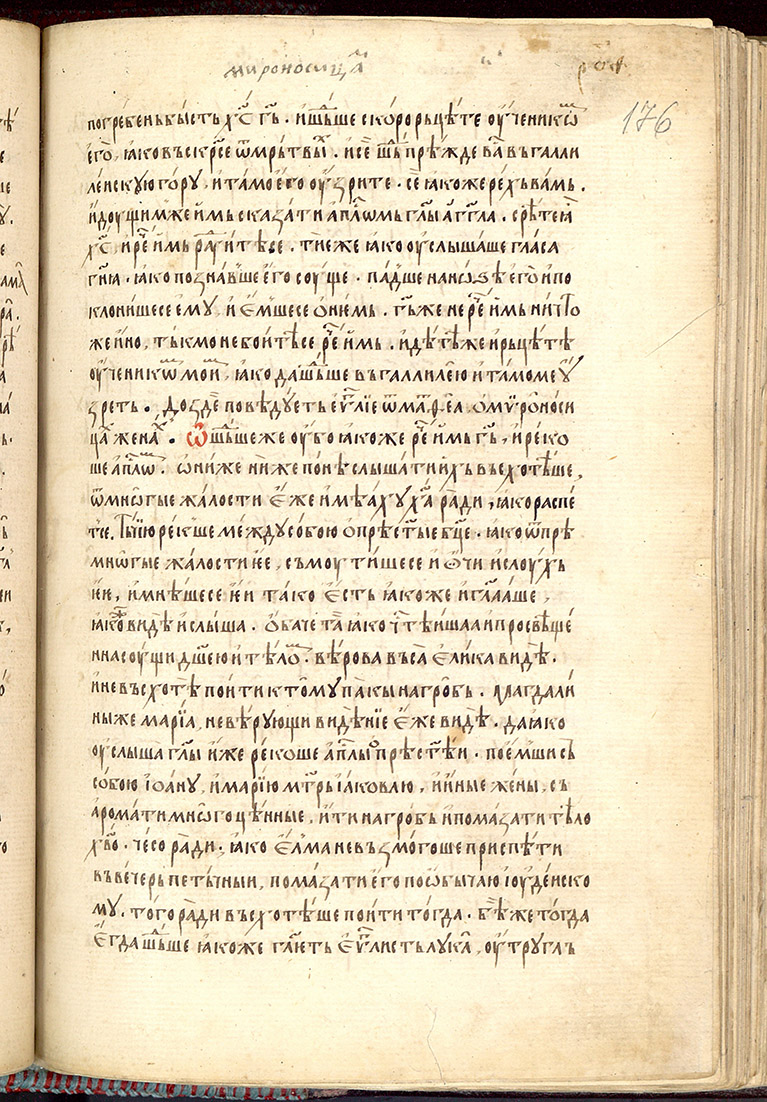 мироносицамⷨ
рот
176
погребень бысть х҃с гь҃. и шⷣьше скоро рьцѣте ѹ҆ченикѡⷨ
его̀, ꙗко въскрⷭ҇се ѿ мрьтвыⷯ. и се̏ шⷣь прѣжде ва̏ въ галли
леискую го́ру, и тамо е҆го ѹ҆зрите. се̏ ꙗкоже рехъ вамь.
и҆дѹщим же и҆мь сказати а҆пⷭ҇лѡмь гл҃ы а҆гг҃ла. срѣте ꙗ̀
х҃с, и ре҃ и҆мь раⷣуитѣсе. тые же ꙗко ѹслышаше гласа
гн҃ꙗ. ꙗко познавⷲше е҆го суще. падⷲше на нѡѕѣ е҆го и҆ по
клонишесе е҆му, и е҆мшесе о҆ нюмь. гь҃ же не реⷱ҇ и҆мь ничто
же и҆но, тъкмо не боитѣсе реⷱ҇ и҆мь. и҆дѣтѣ же и҆ рьцѣтѣ
ѹ҆ченикѡⷨ моиⷨ, ꙗко да шⷣьше въ галлилею и҆ тамо ме ѹ҆
зреть. До здѐ повѣдуеть е҆ѵⷢ҇лїе ѿ маⷴ҇ѳеа. о҆ мѵроноси
цаⷯ женаⷯ. Ѡшⷣьше же ѹ҆бо ꙗкоже реⷱ҇ и҆мь гь҃, и҆ реко
ше а҆пⷭ҇лѡⷨ. ѡ҆ни же ниже понѣ слышати и҆хъ въсхотѣше,
ѿ многые жалости е҆же и҆мѣаху х҃а ради, ꙗко распе
тсе. Тъчїю рекше между собою о҆ прѣстⷭ҇ые бц҃е. ꙗко ѿ прѣ
мнѡгые жалости ее, съмоутишесе и҆ ѻчи и҆ слоухъ
їеи, и҆ мнѣшесе їеи тако е҆сть ꙗкоже и҆ гл҃ааше,
ꙗкоⷤ видѣ и҆ слыша. Ѻбаче та̏ ꙗко чⷭ҇тѣишаа и просвѣще
нна сѹщи дш҃ею и҆ тѣлоⷨ. вѣрова въса е҆лика видѣ.
и҆ не въсхотѣ поити к томѹ пакы на гробь. магдали
ныже марїа, не вѣрующи видѣнїе е҆же видѣ. да ꙗко
ѹ҆слыша гл҃ы и҆же рекоше а҆пⷭ҇лы ѡ прѣстⷭ҇ѣи. поемши съ
собою їоану, и҆ марїю мт҃рь їаковлю, и҆ и҆ные жены, съ
аромати мнѡгоцѣнные, и҆ти на гробь и҆ помазати тѣло
хв҃о. чесо ради. ꙗко е҆лма не възмогоше приспѣти
въ вечерь петъчныи, помазати е҆го по ѡбычаю їѹдеиско
му. того ради въсхотѣше поити тогда. бѣⷯ же тогда
е҆гда шⷣьше ꙗкоже гл҃ѥть е҆ѵⷢ҇листь лука̀, ѹ҆тру глъ